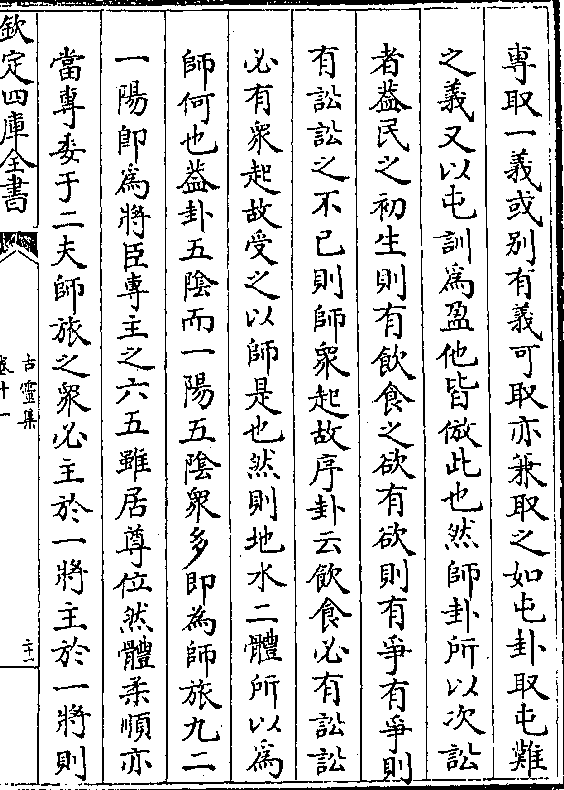 專取一義或别有義可取亦兼取之如屯卦取屯難
之義又以屯訓為盈他皆倣此也然師卦所以次訟
者葢民之初生則有飲食之欲有欲則有爭有爭則
有訟訟之不已則師衆起故序卦云飲食必有訟訟
必有衆起故受之以師是也然則地水二體所以為
師何也葢卦五陰而一陽五陰衆多即為師旅九二
一陽即為將臣專主之六五雖居尊位然體柔順亦
當專委于二夫師旅之衆必主於一將主於一將則
欽定四庫全書
古靈集
卷十一